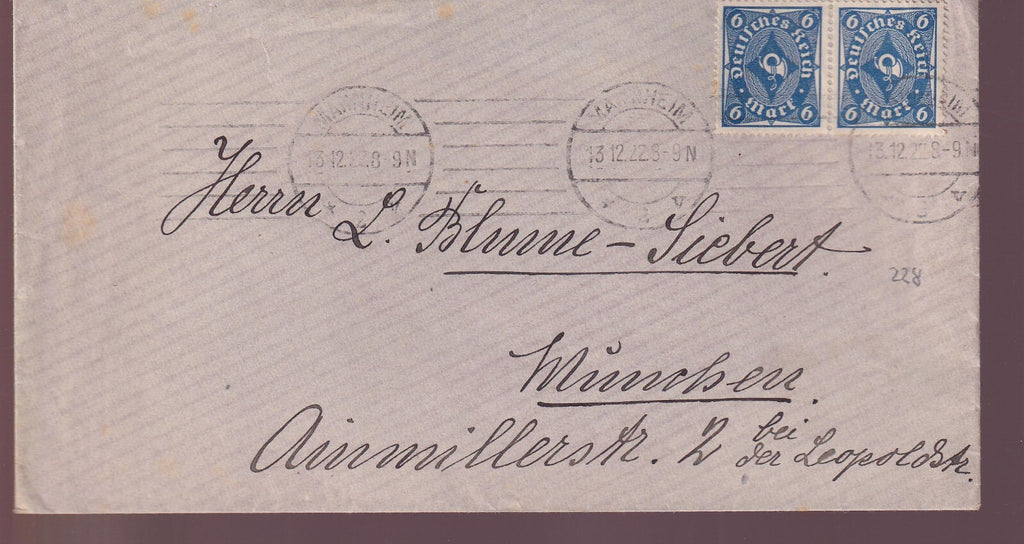 6 Deutsches Reich 6
6 Mark 6
6 Deutsches Reich 6
6 Mark 6
MANNHEIM
13.12.22.8-9N
MANNHEIM
13.12.22.8-9N
13.12.22.8-9N
Herrn L. Blume-Siebert.
228
München.
Ainmillerstr. 2 bei der Leopoldstr.